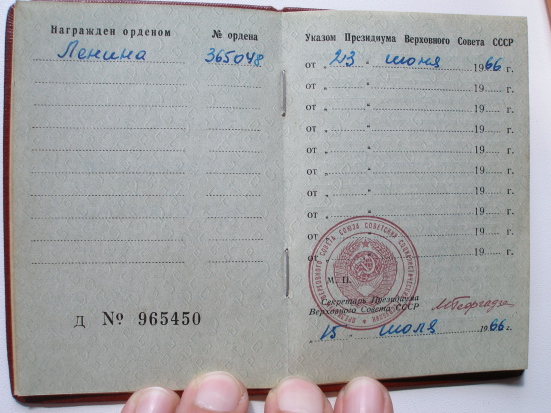 Награжден орденом
№ ордена
Ленина
365048
Д № 965450
Указом Президиума Верховного Совета СССР
от „ 23 “ июня 1966 г.
от „ “ 19 г.
от „ “ 19 г.
от „ “ 19 г.
от „ “ 19 г.
от „ “ 19 г.
от „ “ 19 г.
от „ “ 19 г.
от „ “ 19 г.
от „ “ 19 г.
М. П.
Секретарь Президиума
Верховного Совета СССР
М Георгадзе
15 июля 1966 г.